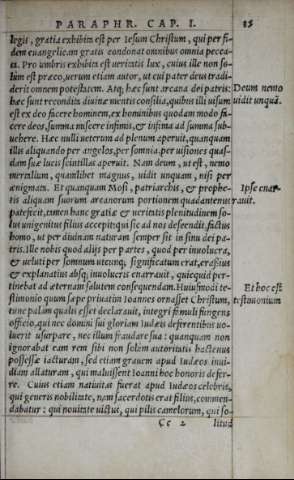 PARAPHR. CAP. I. 85
legis, gratia exhibita est per Iesum Christum, qui per fi
dem euangelicam gratis condonat omnibus omnia pecca-
ta. Pro umbris exhibita est ueritatis lux, cuius ille non so-
lùm est præco, uerum etiam autor, ut cui pater deus tradi-
derit omnem potestatem. Atq; hæc sunt arcana dei patris: Deum nemo
hæc sunt recondita diuinæ mentis consilia, quibus illi uisum uidit unquā.
est ex deo facere hominem, ex hominibus quodam modo fa-
cere deos, summa miscere infimis, & infima ad summa sub-
uehere. Hæc nulli ueterum ad plenum aperuit, quanquam
illis aliquando per angelos, per somnia, per uisiones quas-
dam suæ lucis scintillas aperuit. Nam deum, ut est, nemo
mortalium, quamlibet magnus, uidit unquam, nisi per
ænigmata. Et quanquam Mosi, patriarchis, & prophe- Ipse enar-
tis aliquam suorum arcanorum portionem quadantenus rauit.
patefecit, tamen hanc gratiæ & ueritatis plenitudinem so-
lus unigenitus filius accepit, qui sic ad nos descendit factus
homo, ut per diuinam naturam semper sit in sinu dei pa-
tris. Ille nobis quod alijs per partes, quod per inuolucra,
& ueluti per somnum uisumq; significatum erat, crassius
& explanatius absq; inuolucris enarrauit, quicquid per-
tinebat ad æternam salutem consequendam. Huiusmodi te- Et hoc est
stimonio quum sæpe priuatim Ioannes ornasset Christum, testimonium
tunc palàm qualis esset declarauit, integri famuli fungens
officio, qui nec domini sui gloriam Iudæis deferentibus uo-
luerit usurpare, nec illum fraudare sua: quanquam non
ignorabat eam rem sibi non solùm autoritatis hactenus
possessæ iacturam, sed etiam grauem apud Iudæos inui-
diam allaturam, qui maluissent Ioanni hoc honoris defer-
re. Cuius etiam natiuitas fuerat apud Iudæos celebris,
qui generis nobilitate, nam sacerdotis erat filius, commen-
dabatur: qui nouitate uictus, qui pilis camelorum, qui so-
Cc 2 litud